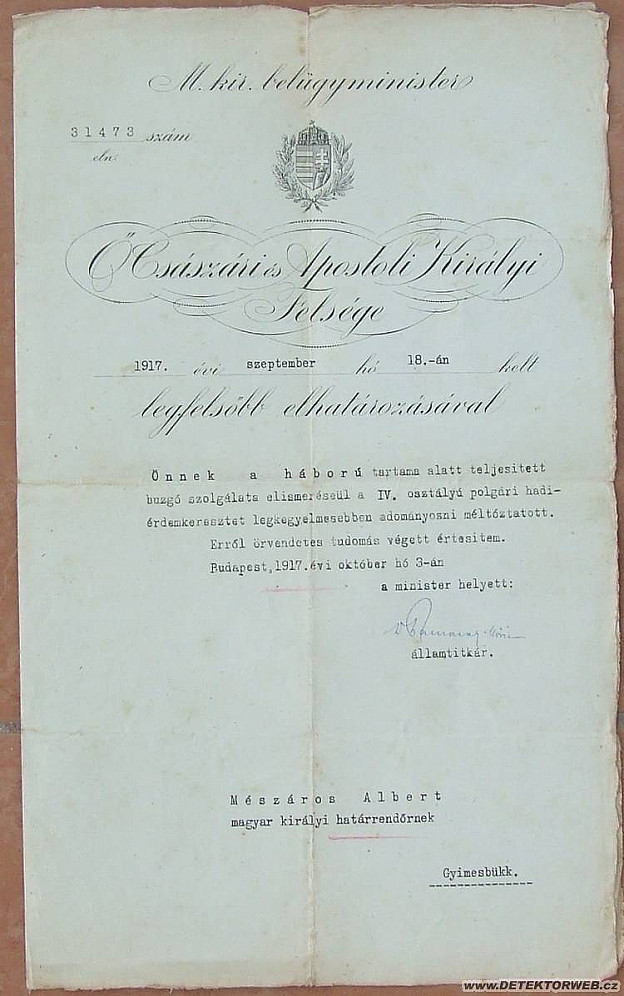 M. kir. belügyminister
31473 szám
eln.
Ő Császári és Apostoli Királyi
Felsége
1917. évi szeptember hó 18.-án kelt
legfelsőbb elhatározásával
Önnek a háború tartama alatt teljesitett
buzgó szolgálata elismeréseül a IV. osztályú polgári hadi-
érdemkeresztet legkegyelmesebben adományozni méltóztatott.
Erről örvendetes tudomás végett értesitem.
Budapest,1917.évi október hó 3-án
a minister helyett:
államtitkár.
Mészáros Albert
magyar királyi határrendőrnek
Gyimesbükk.
www.DETEKTORWEB.cz